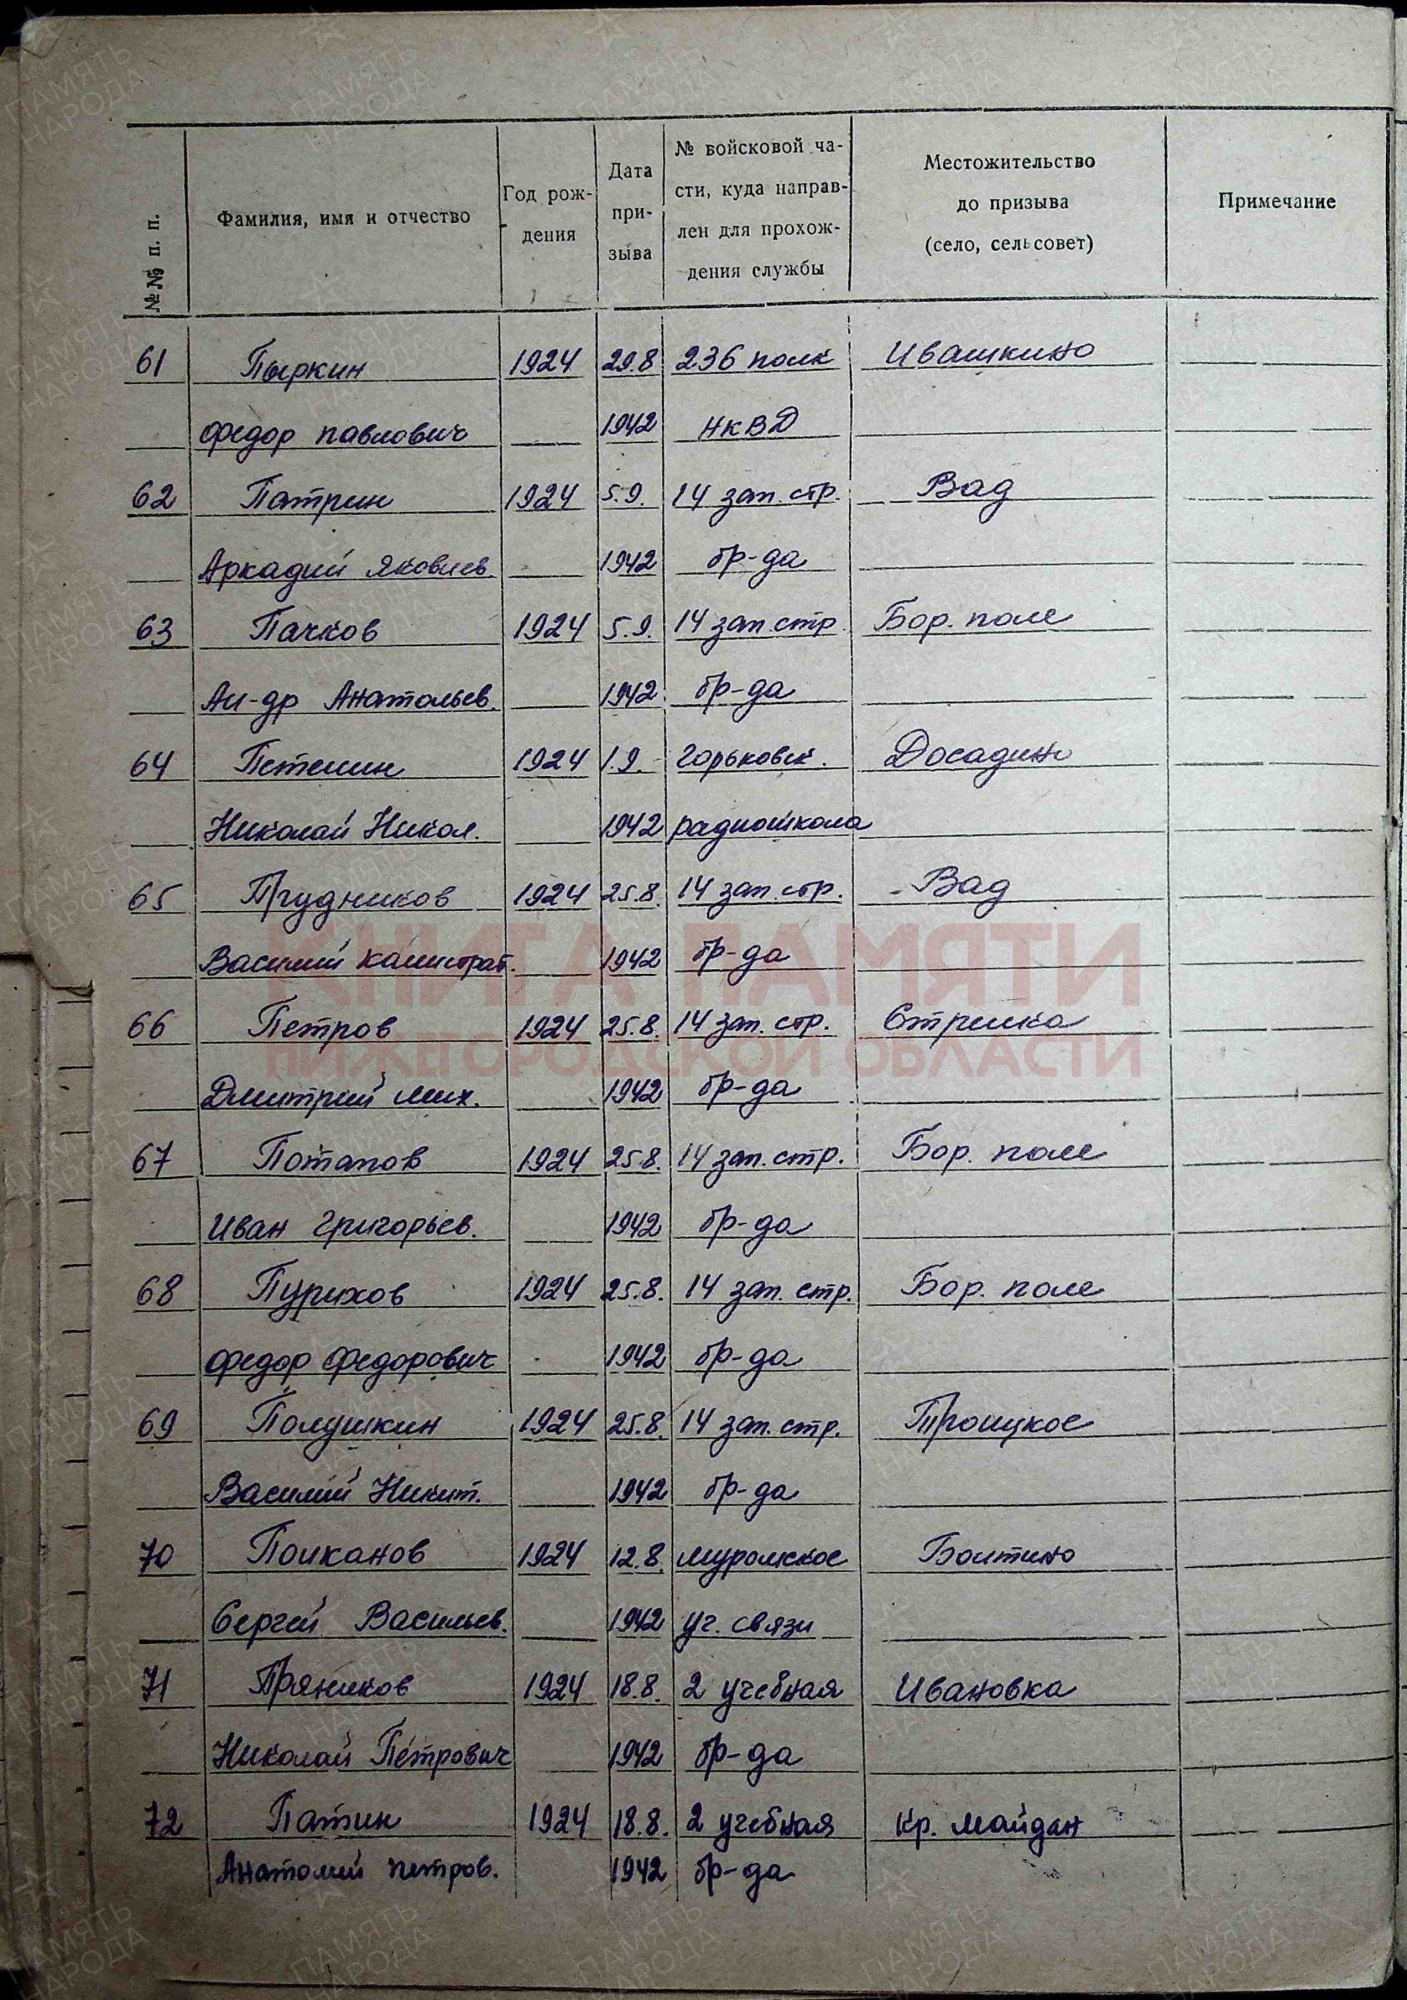 №№ п. п.
Фамилия, имя и отчество
Год рож-
дения
Дата
при-
зыва
№ войсковой ча-
сти, куда направ-
лен для прохож-
дения службы
Местожительство
до призыва
(село, сельсовет)
Примечание
61 Пыркин 1924 29.8 236 полк Ивашкино
Федор Павлович 1942 НКВД
62 Патрин 1924 5.9. 14 зап. стр. Вад
Аркадий Яковлев. 1942 бр-да
63 Пачков 1924 5.9. 14 зап. стр. Бор. поле
Ал-др Анатольев. 1942 бр-да
64 Петелин 1924 1.9. Горьковск. Досадино
Николай Никол. 1942 радиошкола
65 Прудников 1924 25.8. 14 зап. стр. Вад
Василий Калистрат. 1942 бр-да
66 Петров 1924 25.8. 14 зап. стр. Стрелка
Дмитрий Мих. 1942 бр-да
67 Потапов 1924 25.8. 14 зап. стр. Бор. поле
Иван Григорьев. 1942 бр-да
68 Пурихов 1924 25.8. 14 зап. стр. Бор. поле
Федор Федорович 1942 бр-да
69 Полушкин 1924 25.8. 14 зап. стр. Троицкое
Василий Никит. 1942 бр-да
70 Полканов 1924 12.8. Муромское Болтино
Сергей Васильев. 1942 уч. связи
71 Пряников 1924 18.8. 2 учебная Ивановка
Николай Петрович 1942 бр-да
72 Патин 1924 18.8. 2 учебная Кр. Майдан
Анатолий Петров. 1942 бр-да
КНИГА ПАМЯТИ
НИЖЕГОРОДСКОЙ ОБЛАСТИ
ПАМЯТЬ
НАРОДА